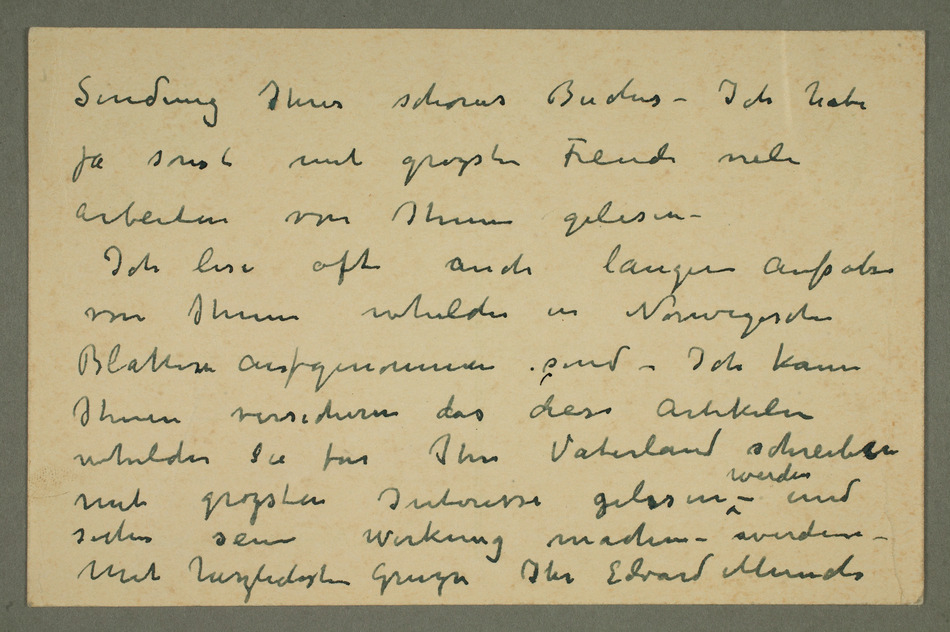 Sendung Ihres schones Buches – Ich habe
ja sonst mit grozster Freude viele
Arbeiten von Ihnen gelesen –
Ich lese oft auch langere Aufsatse
von Ihnen whelche in Norwegische
Blattern aufgenommen sind – Ich kann
Ihnen versichern das diese Artikeln
whelche Sie für Ihre Vaterland schreiben
mit grozsten Interesse gelesen – werden und
sicher seine Wirkung machen – werden –
Mit herzlichsten Gruzse Ihr Edvard Munch